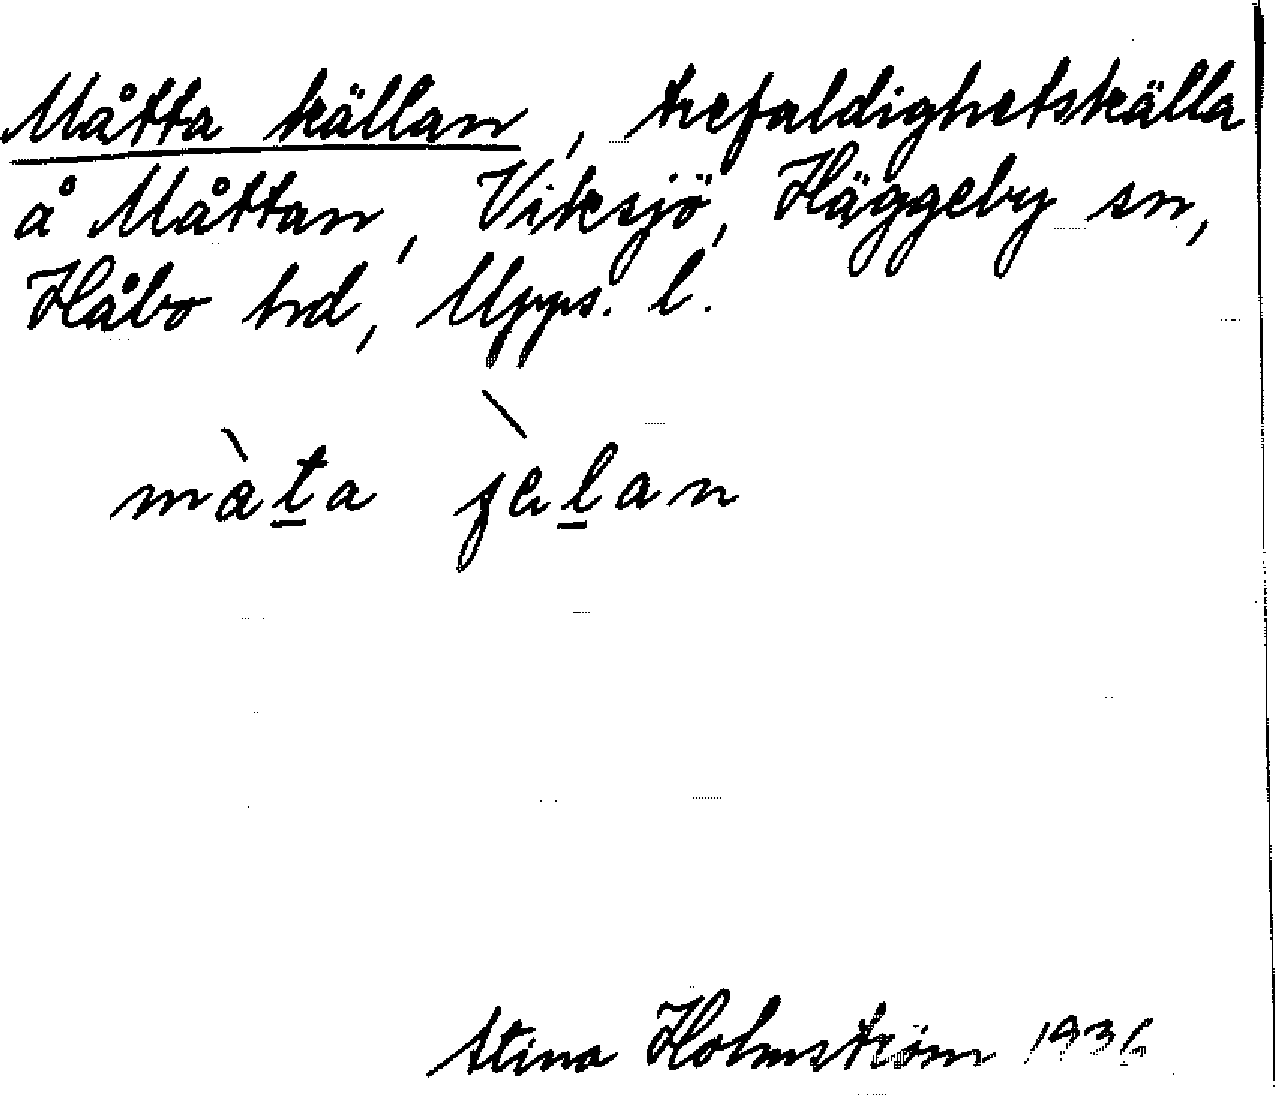 Måtta källan, trefaldighetskälla
å Måttan, Viksjö, Häggeby sn,
Håbo hd, Upps. l.
màta jelan
Stina Holmström 1936